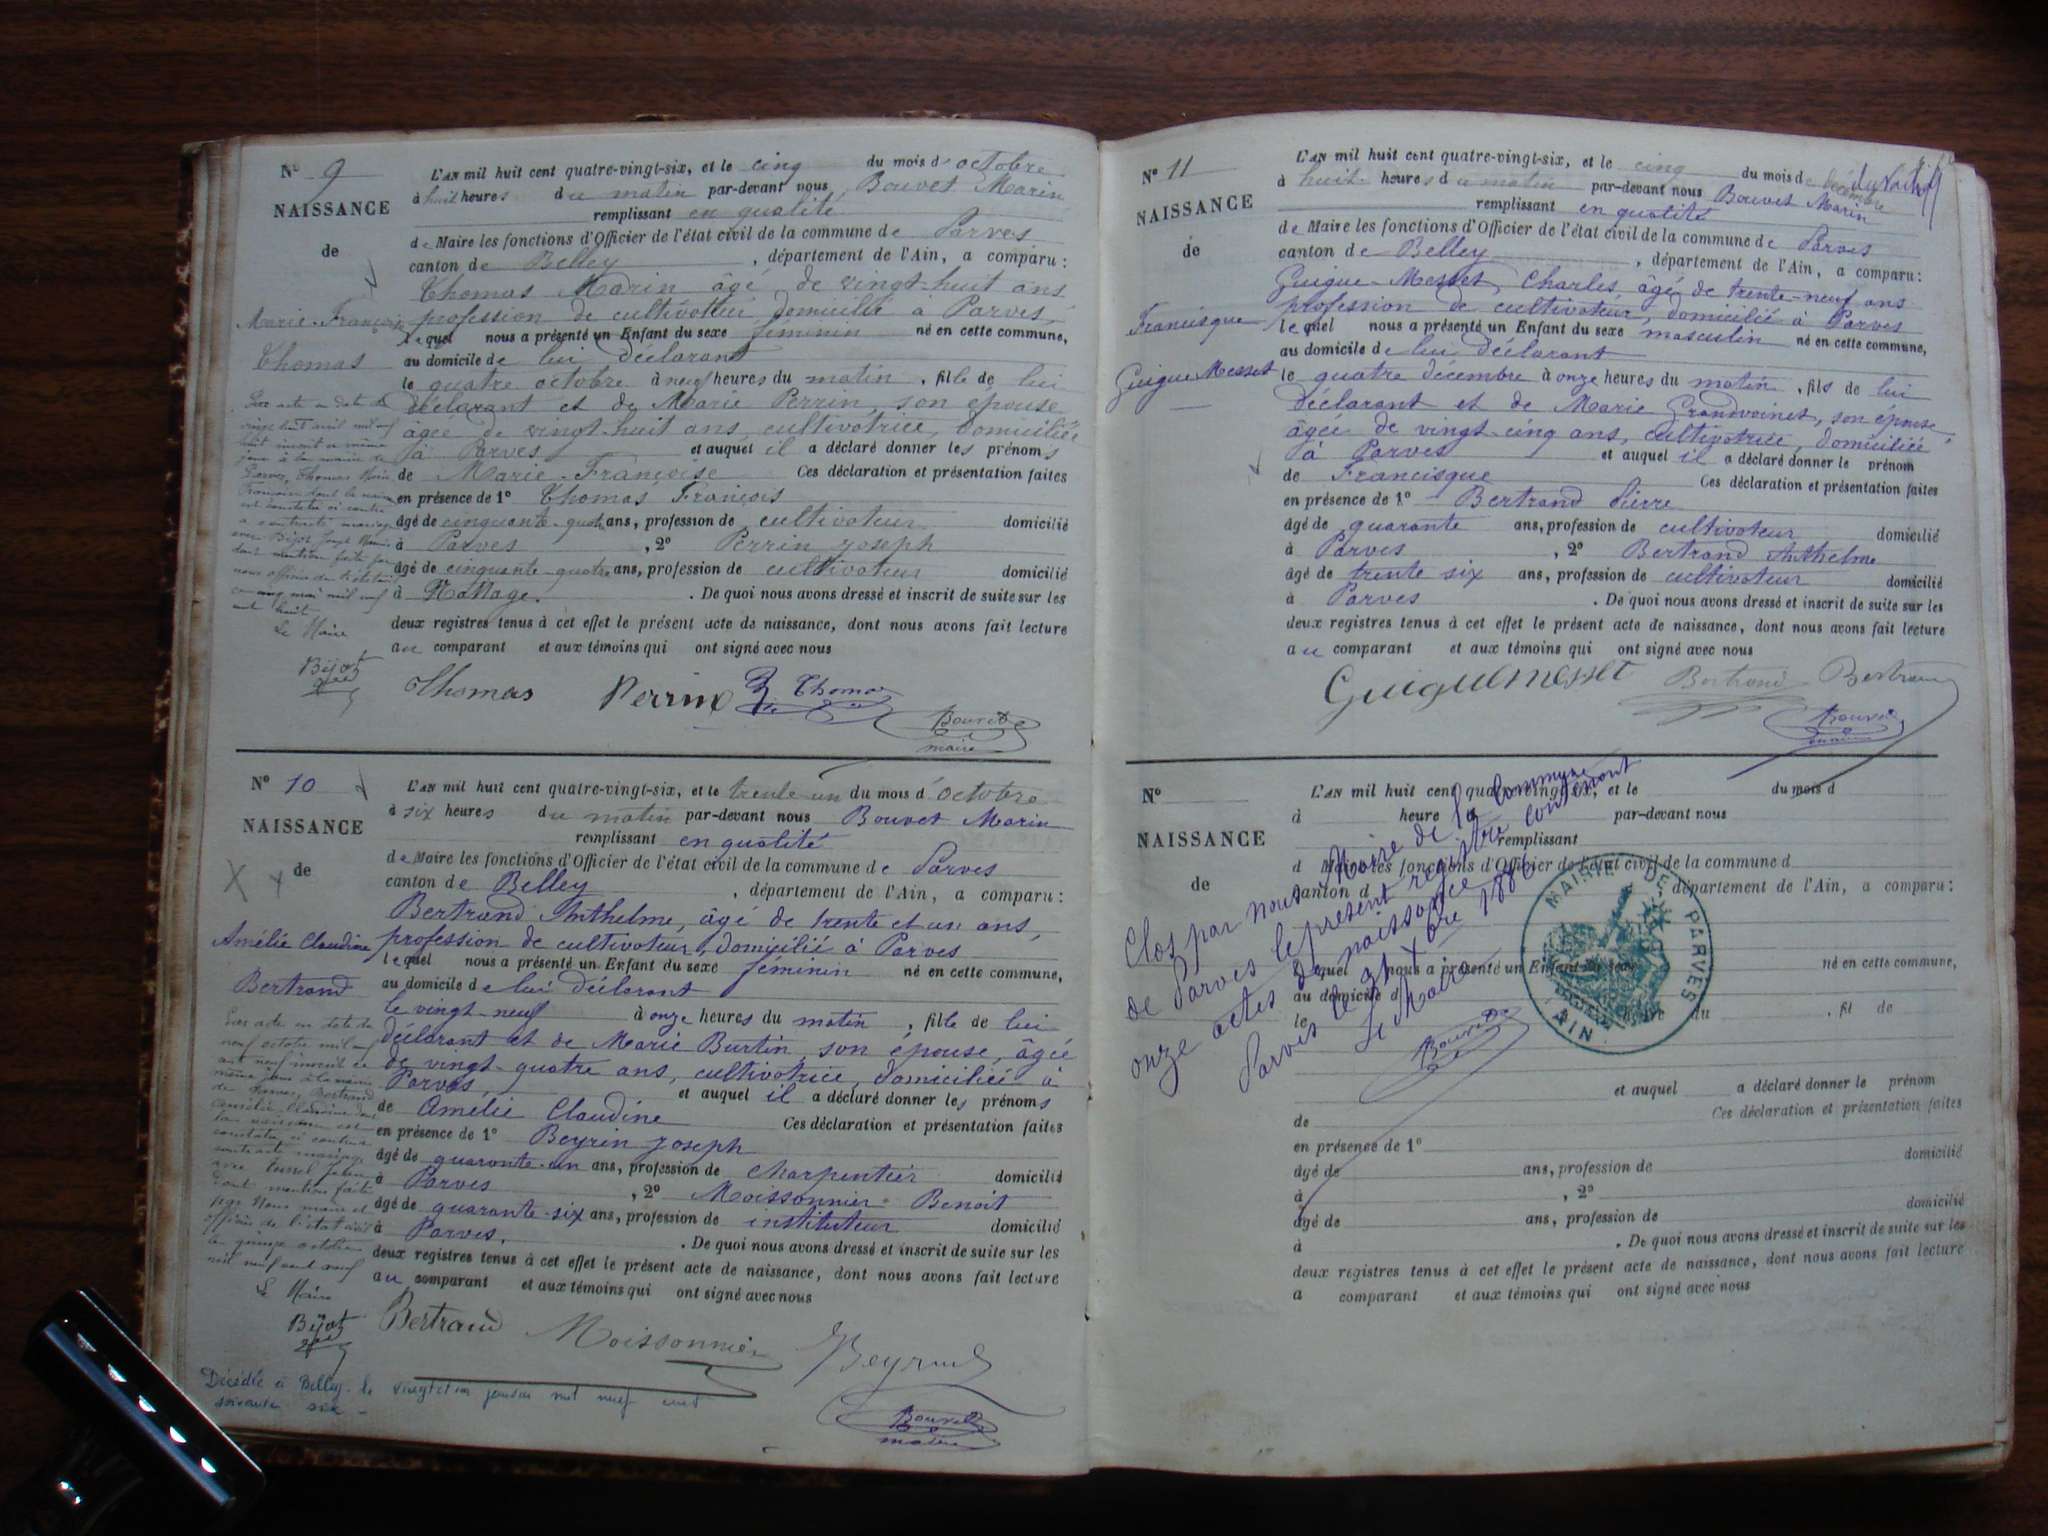 N° 9
NAISSANCE
de
Marie-Françoise
Thomas
L'AN mil huit cent quatre-vingt-six, et le cinq du mois d'octobre
à huit heures du matin par-devant nous Bouvet Marin
remplissant en qualité
de Maire les fonctions d'Officier de l'état civil de la commune de Parves
canton de Belley, département de l'Ain, a comparu :
Thomas Marin âgé de vingt-huit ans
profession de cultivateur, domicilié à Parves,
lequel nous a présenté un Enfant du sexe féminin né en cette commune,
au domicile de lui déclarant
le quatre octobre à neuf heures du matin, fille de lui
déclarant et de Marie Perrin, son épouse
âgée de vingt-huit ans, cultivatrice, domiciliée
à Parves et auquel il a déclaré donner les prénoms
de Marie-Françoise Ces déclaration et présentation faites
en présence de 1° Thomas François
âgé de cinquante-quatre ans, profession de cultivateur domicilié
à Parves, 2° Perrin Joseph
âgé de cinquante-quatre ans, profession de cultivateur domicilié
à Nattage. De quoi nous avons dressé et inscrit de suite sur les
deux registres tenus à cet effet le présent acte de naissance, dont nous avons fait lecture
au comparant et aux témoins qui ont signé avec nous
Par acte en date du
vingt huit avril mil neuf
huit inscrit le même
jour à la mairie de
Parves, Thomas Marie
Françoise dont la naissance
est constatée ci contre
a contracté mariage
avec Bijot Joseph
dont mention faite par
nous officier de l'état civil
mai mil neuf
cent huit
Le Maire
Bijot
Thomas Perrin Thomas
Bouvet
maire
N° 10
NAISSANCE
de
Amélie Claudine
Bertrand
L'AN mil huit cent quatre-vingt-six, et le trente un du mois d'octobre
à six heures du matin par-devant nous Bouvet Marin
remplissant en qualité
de Maire les fonctions d'Officier de l'état civil de la commune de Parves
canton de Belley, département de l'Ain, a comparu :
Bertrand Anthelme, âgé de trente et un ans,
profession de cultivateur, domicilié à Parves
lequel nous a présenté un Enfant du sexe féminin né en cette commune,
au domicile de lui déclarant
le vingt-neuf à onze heures du matin, fille de lui
déclarant et de Marie Burtin, son épouse, âgée
de vingt-quatre ans, cultivatrice, domiciliée à
Parves, et auquel il a déclaré donner les prénoms
de Amélie Claudine Ces déclaration et présentation faites
en présence de 1° Beyrin Joseph
âgé de quarante-un ans, profession de charpentier domicilié
à Parves, 2° Moissonnier Benoit
âgé de quarante-six ans, profession de instituteur domicilié
à Parves. De quoi nous avons dressé et inscrit de suite sur les
deux registres tenus à cet effet le présent acte de naissance, dont nous avons fait lecture
au comparant et aux témoins qui ont signé avec nous
Par acte en date du
neuf octobre mil neuf
cent neuf inscrit le
même jour à la mairie
de Parves, Bertrand
Amélie Claudine dont
la naissance est
constatée ci contre
contracté mariage
avec
dont mention faite
par Nous maire et
officier de l'état civil
le quinze octobre
mil neuf cent neuf
Le Maire
Bijot
Bertrand Moissonnier Beyrin
Bouvet
maire
Décédée à Belley le janvier mil neuf cent
soixante six
N° 11
NAISSANCE
de
Francisque
Guigue Messet
L'AN mil huit cent quatre-vingt-six, et le cinq du mois de décembre
à huit heures du matin par-devant nous Bouvet Marin
remplissant en qualité
de Maire les fonctions d'Officier de l'état civil de la commune de Parves
canton de Belley, département de l'Ain, a comparu :
Guigue-Messet, Charles, âgé de trente-neuf ans
profession de cultivateur, domicilié à Parves
lequel nous a présenté un Enfant du sexe masculin né en cette commune,
au domicile de lui déclarant
le quatre décembre à onze heures du matin, fils de lui
déclarant et de Marie Grandvoinet, son épouse,
âgée de vingt-cinq ans, cultivatrice, domiciliée
à Parves et auquel il a déclaré donner le prénom
de Francisque Ces déclaration et présentation faites
en présence de 1° Bertrand Pierre
âgé de quarante ans, profession de cultivateur domicilié
à Parves, 2° Bertrand Anthelme
âgé de trente six ans, profession de cultivateur domicilié
à Parves. De quoi nous avons dressé et inscrit de suite sur les
deux registres tenus à cet effet le présent acte de naissance, dont nous avons fait lecture
au comparant et aux témoins qui ont signé avec nous
Guiguemesset Bertrand Bertrand
Bouvet
maire
N°
NAISSANCE
de
L'AN mil huit cent quatre-vingt-six, et le du mois d
à heure d par-devant nous
remplissant
d Maire les fonctions d'Officier de l'état civil de la commune d
canton d, département de l'Ain, a comparu :
lequel nous a présenté un Enfant du sexe né en cette commune,
au domicile d
le heure du , fil de
et auquel a déclaré donner le prénom
de Ces déclaration et présentation faites
en présence de 1°
âgé de ans, profession de domicilié
à , 2°
âgé de ans, profession de domicilié
à . De quoi nous avons dressé et inscrit de suite sur les
deux registres tenus à cet effet le présent acte de naissance, dont nous avons fait lecture
a comparant et aux témoins qui ont signé avec nous
Clos par nous Maire de la commune
de Parves le présent registre contenant
onze actes de naissance
Parves le 31 Xbre 1886
Le Maire
Bouvet
MAIRIE DE PARVES
AIN